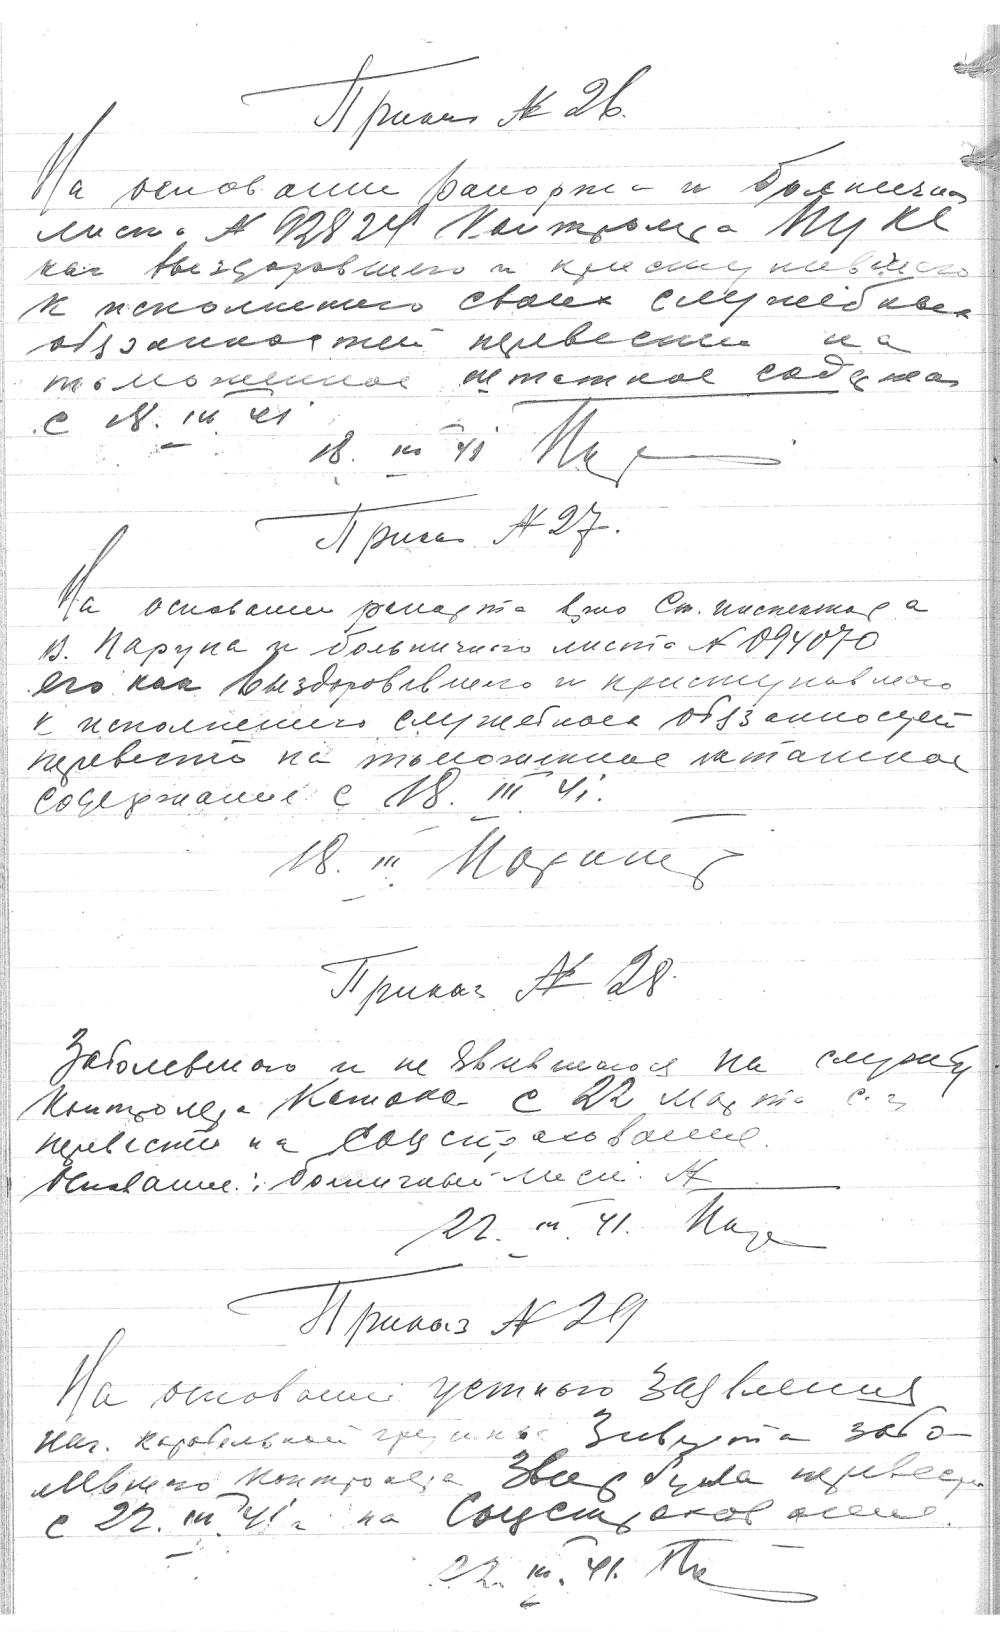 Приказ № 26.
На основании рапорта и больничн
листа № 92824 Контролера
как выздоровевшего и приступившего
к исполнению своих служебных
обязанностей перевести на
таможенное штатное содержа
с 18. III 41
18. III 41
Приказ № 27.
На основании рапорта Ст. инспектора
В. Парупа и больничного листа № 094070
его как выздоровевшего и приступившего
к исполнению служебных обязанностей
перевести на таможенное штатное
содержание с 18. III 41.
18. III
Приказ № 28
Заболевшего и не явившегося на службу
Контролера с 22 марта с. г
перевести на Соцстрахование.
Основание: больничный лист №
22. III. 41.
Приказ № 29
На основании устного заявления
нач. карабельной группы забо-
левшего контролера перевести
с 22. III. 41 г на Соцстрахование.
22. III. 41.